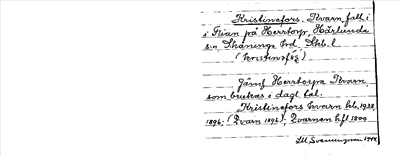 Kristinefors. Kvarn, fall i
i Flian på Herrtorp, Härlunda
s:n, Skånings hd. Skb. l.
(kristinsfors)
Jämf Herrtorps Kvarn,
som brukas i dagl. tal.
Kristinefors kvarn kb. 1938,
1896; (Qvarn 1895), Qvarnen hfl 1800